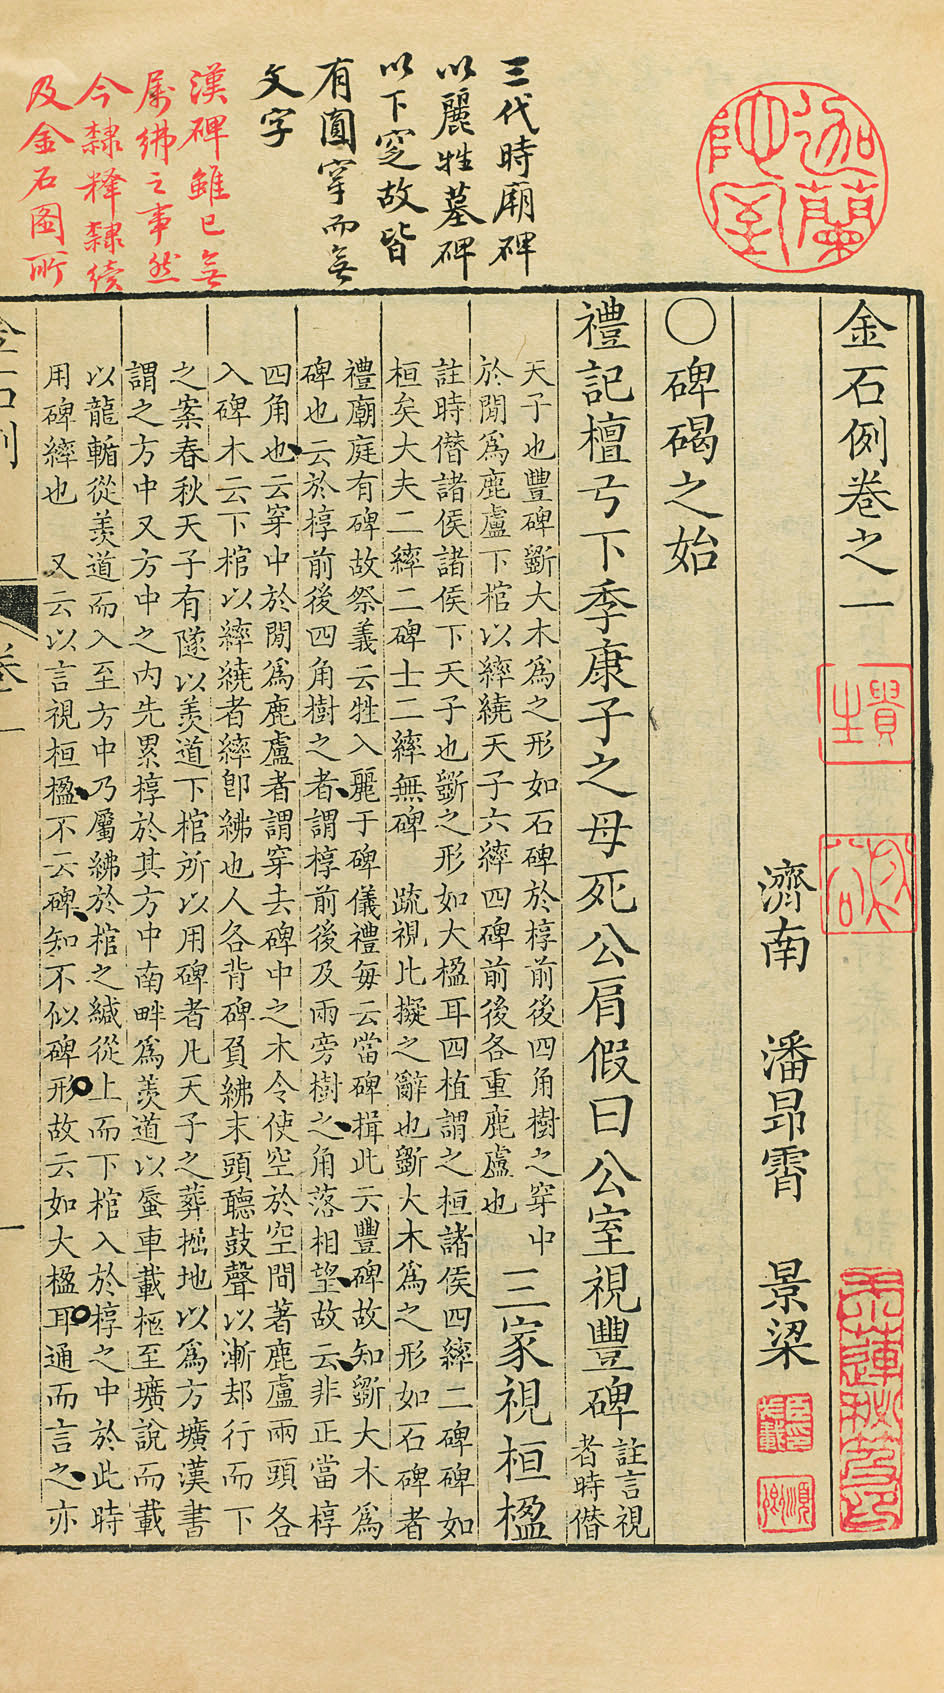 三代時廟碑
以麗牲墓碑
以下窆故皆
有圓穿而無
文字
漢碑雖已無
屬紼之事然
今隸釋隸續
及金石圖所
迦蘭陀室
金石例卷之一
濟南 潘昂霄 景梁
〇碑碣之始
禮記檀弓下季康子之母死公肩假曰公室視豐碑註言視
者時僭
天子也豐碑斲大木爲之形如石碑於椁前後四角樹之穿中
於閒爲鹿盧下棺以繂繞天子六繂四碑前後各重鹿盧也
三家視桓楹
註時僭諸侯諸侯下天子也斲之形如大楹耳四植謂之桓諸侯四繂二碑碑如
桓矣大夫二繂二碑士二繂無碑 疏視比擬之辭也斲大木爲之形如石碑者
禮廟庭有碑故祭義云牲入麗于碑儀禮每云當碑揖此云豐碑故知斲大木爲
碑也云於椁前後四角樹之者謂椁前後及兩旁樹之角落相望故云非正當椁
四角也云穿中於閒爲鹿盧者謂穿去碑中之木令使空於空間著鹿盧兩頭各
入碑木云下棺以繂繞者繂卽紼也人各背碑負紼末頭聽鼓聲以漸却行而下
之案春秋天子有隧以羨道下棺所以用碑者凡天子之葬掘地以爲方壙漢書
謂之方中又方中之內先累椁於其方中南畔爲羨道以蜃車載柩至壙說而載
以龍輴從羨道而入至方中乃屬紼於棺之緘從上而下棺入於椁之中於此時
用碑繂也 又云以言視桓楹不云碑知不似碑形故云如大楹耳通而言之亦
金石例
卷一
一